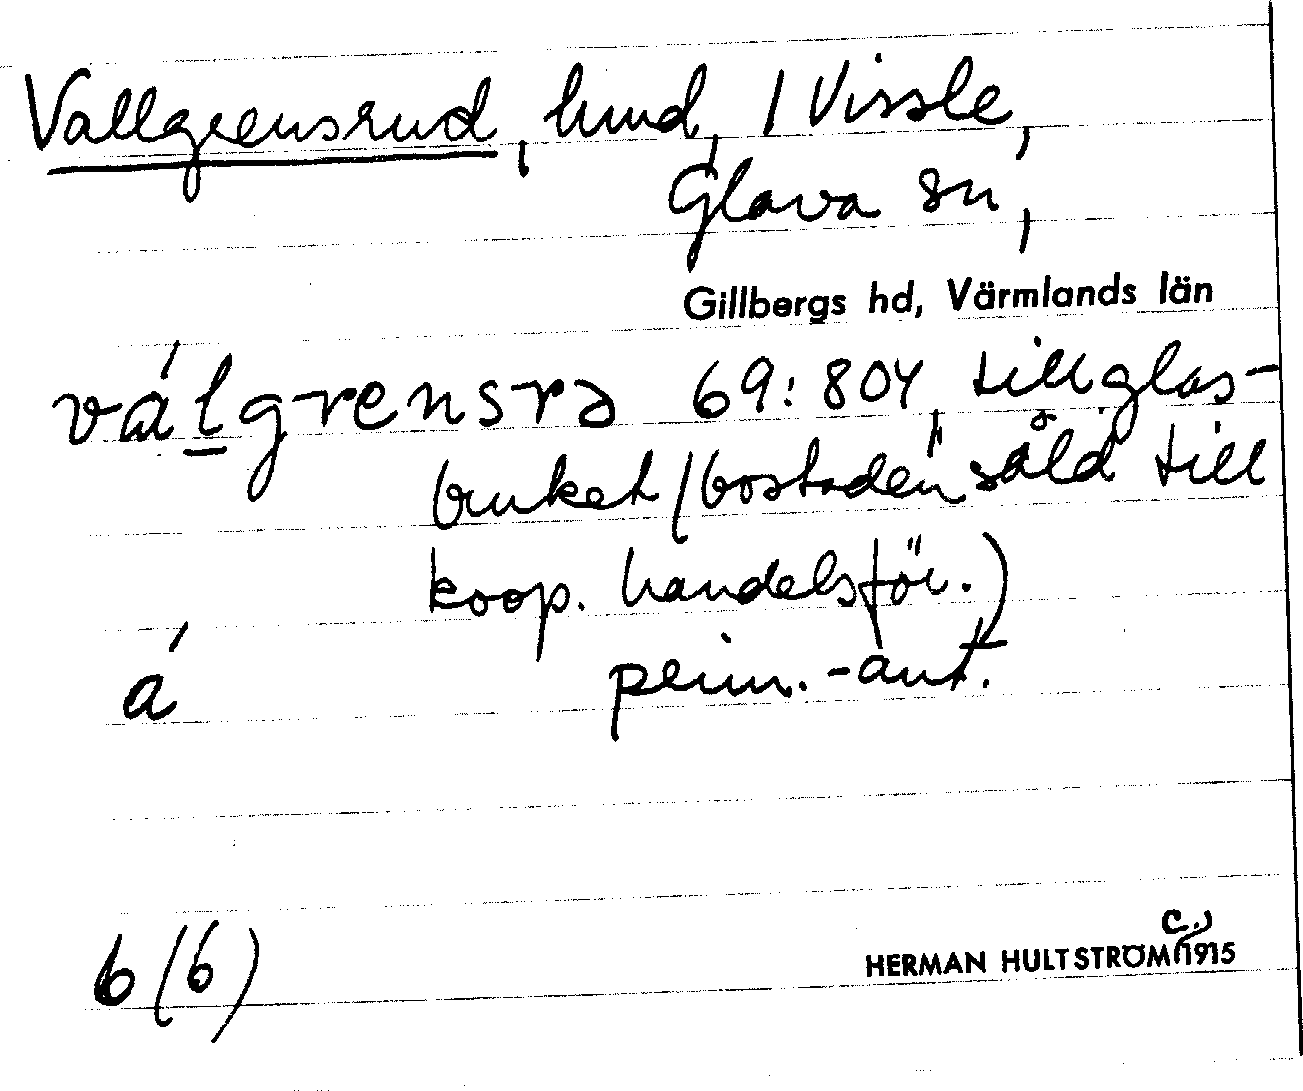 Vallgrensrud, lund, 1 Vissle,
Glava sn,
Gillbergs hd, Värmlands län
válgrensrə 69:804, till glas-
bruket (bostaden såld till
koop. handelsför.)
á perm.-ant.
6 (6)
HERMAN HULTSTRÖM c. 1915